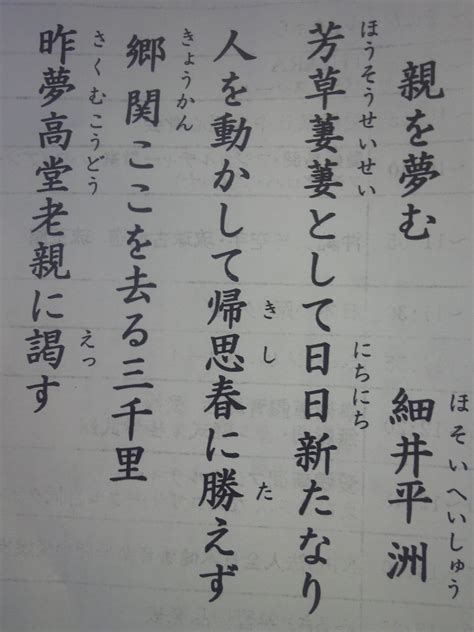 親を夢む　細井平洲
ほそいへいしゅう
芳草萋萋として日日新たなり
ほうそうせいせい　にちにち
人を動かして帰思春に勝えず
きし　た
郷関ここを去る三千里
きょうかん
昨夢高堂老親に謁す
さくむこうどう　えっ